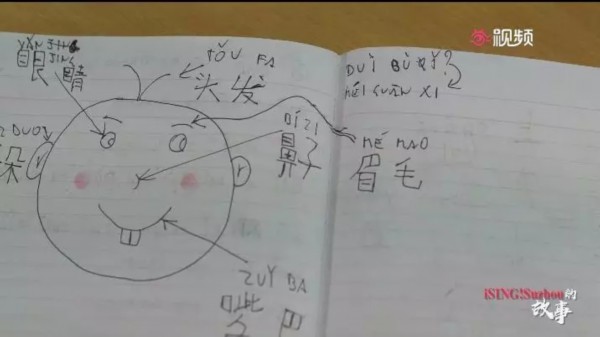 视频
YǍN JING
JING
眼睛
TǑU FA
头发
DUÌ BÙ QǏ?
MÉI GUĀN XI
DUO
朵
BÍ ZI
鼻子
MÉ MAO
眉毛
ZUǏ BA
iSING!Suzhou的
故事